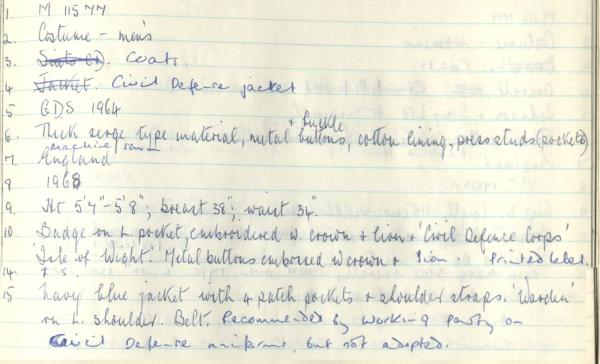 1. M 115 77
2. Costume - men's
3. Suits (2). Coats.
4. Jacket. Civil Defense jacket
5 GDS 1964
+ buckle
6. Thick serge type material, metal buttons, cotton lining, press studs (pockets)
machine sewn
7. England
8 1968
9. Ht 5'7"-5'8"; breast 38"; waist 34".
10 Badge on L. pocket, embroidered w. crown + lion + 'Civil Defence Corps'
'Isle of Wight'. Metal buttons embossed w crown + lion. Printed label.
14
15 Navy blue jacket with 4 patch pockets + shoulder straps. 'Warden'
on L. shoulder. Belt. Recommended by working party on
Civil Defense uniforms, but not adopted.